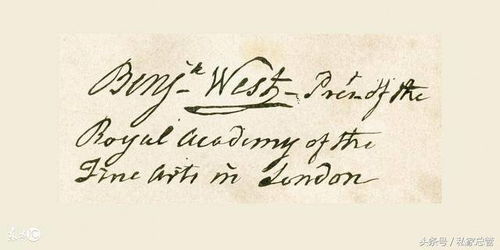 Benjn West Prest of the
Royal Academy of the
Fine Arts in London
头条号/私家总管